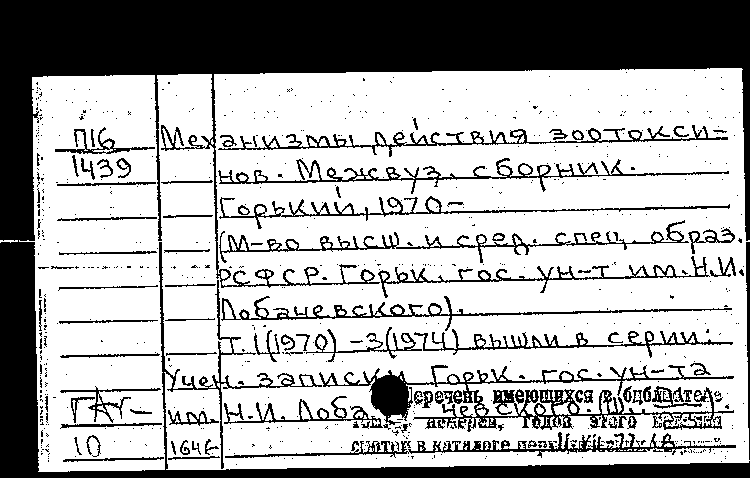 П16 Механизмы действия зоотокси-
1439 нов. Межвуз. сборник.
Горький, 1970-
(М-во высш. и сред. спец. образ.
РСФСР. Горьк. гос. ун-т им. Н.И.
Лобачевского).
Т.1(1970) -3(1974) вышли в серии:
Учен. записки Горьк. гос. ун-та
им. Н.И. Лобачевского.
Перечень имеющихся в библиотеке
номеров, годов этого издания
10 смотри в каталоге